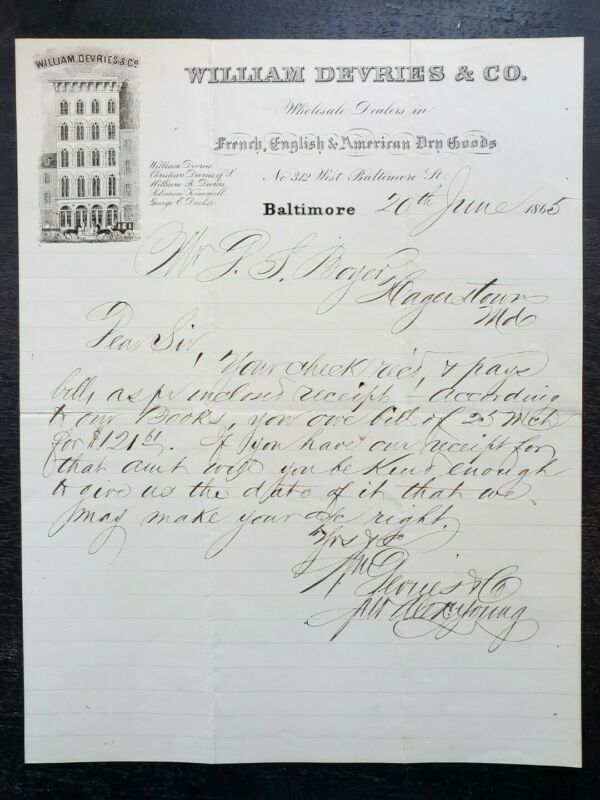 WILLIAM DEVRIES & Co
WILLIAM DEVRIES & CO.
Wholesale Dealers in
French, English & American Dry Goods
William Devries.
Christian Devries of S.
William R. Devries.
Solomon Kimmell.
George E. Ducker.
No 312 West Baltimore St.
Baltimore 20th June 1865
Mr P. S. Boyer
Hagerstown
Md
Dear Sir,
Your check recd, & pays
bills as pr enclosed receipt – according
to our Books, you owe bill of 25 Mch
for $121 61. If you have our receipt for
that amt will you be kind enough
to give us the date of it that we
may make your a/c right.
Yrs &c
Wm Devries & Co
Young